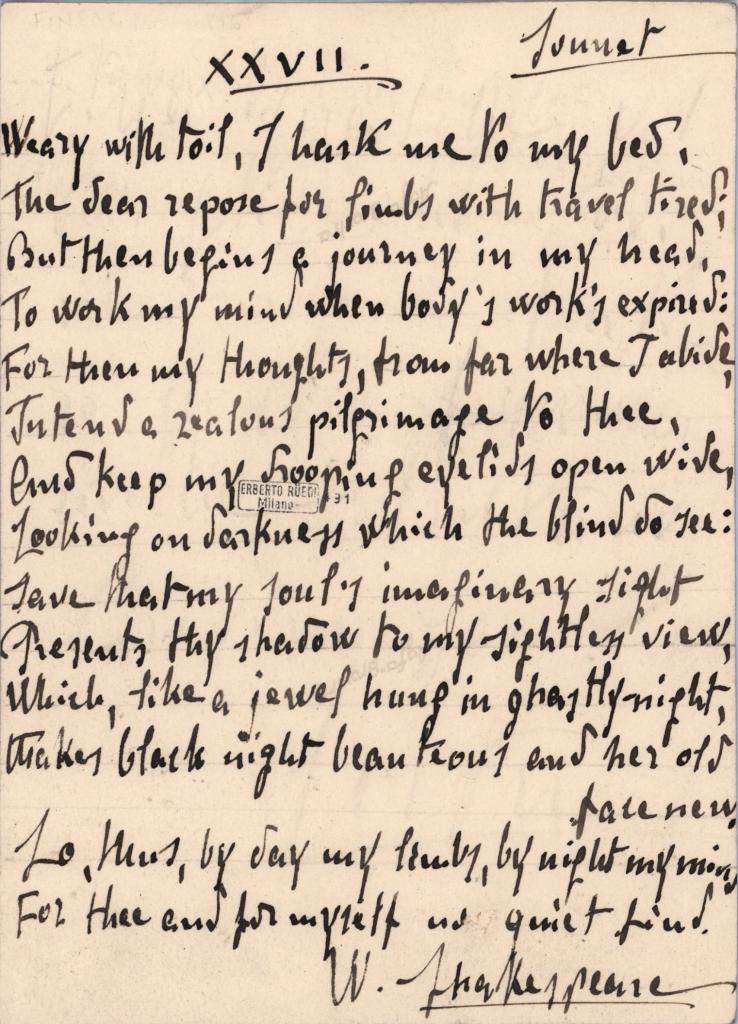 Sonnet
XXVII.
Weary with toil, I hask me to my bed,
The dear repose for limbs with travel tired;
But then begins a journey in my head,
To work my mind when body's work's expired:
For then my thoughts, from far where I abide,
Intend a zealous pilgrimage to thee,
And keep my drooping eyelids open wide,
ERBERTO RUEDI
Milano
31
Looking on darkness which the blind do see:
Save that my soul's imaginary sight
Presents thy shadow to my sightless view,
Which, like a jewel hung in ghastly night,
Makes black night beauteous and her old
face new.
Lo, thus, by day my limbs, by night my mind
For thee and for myself no quiet find.
W. Shakespeare